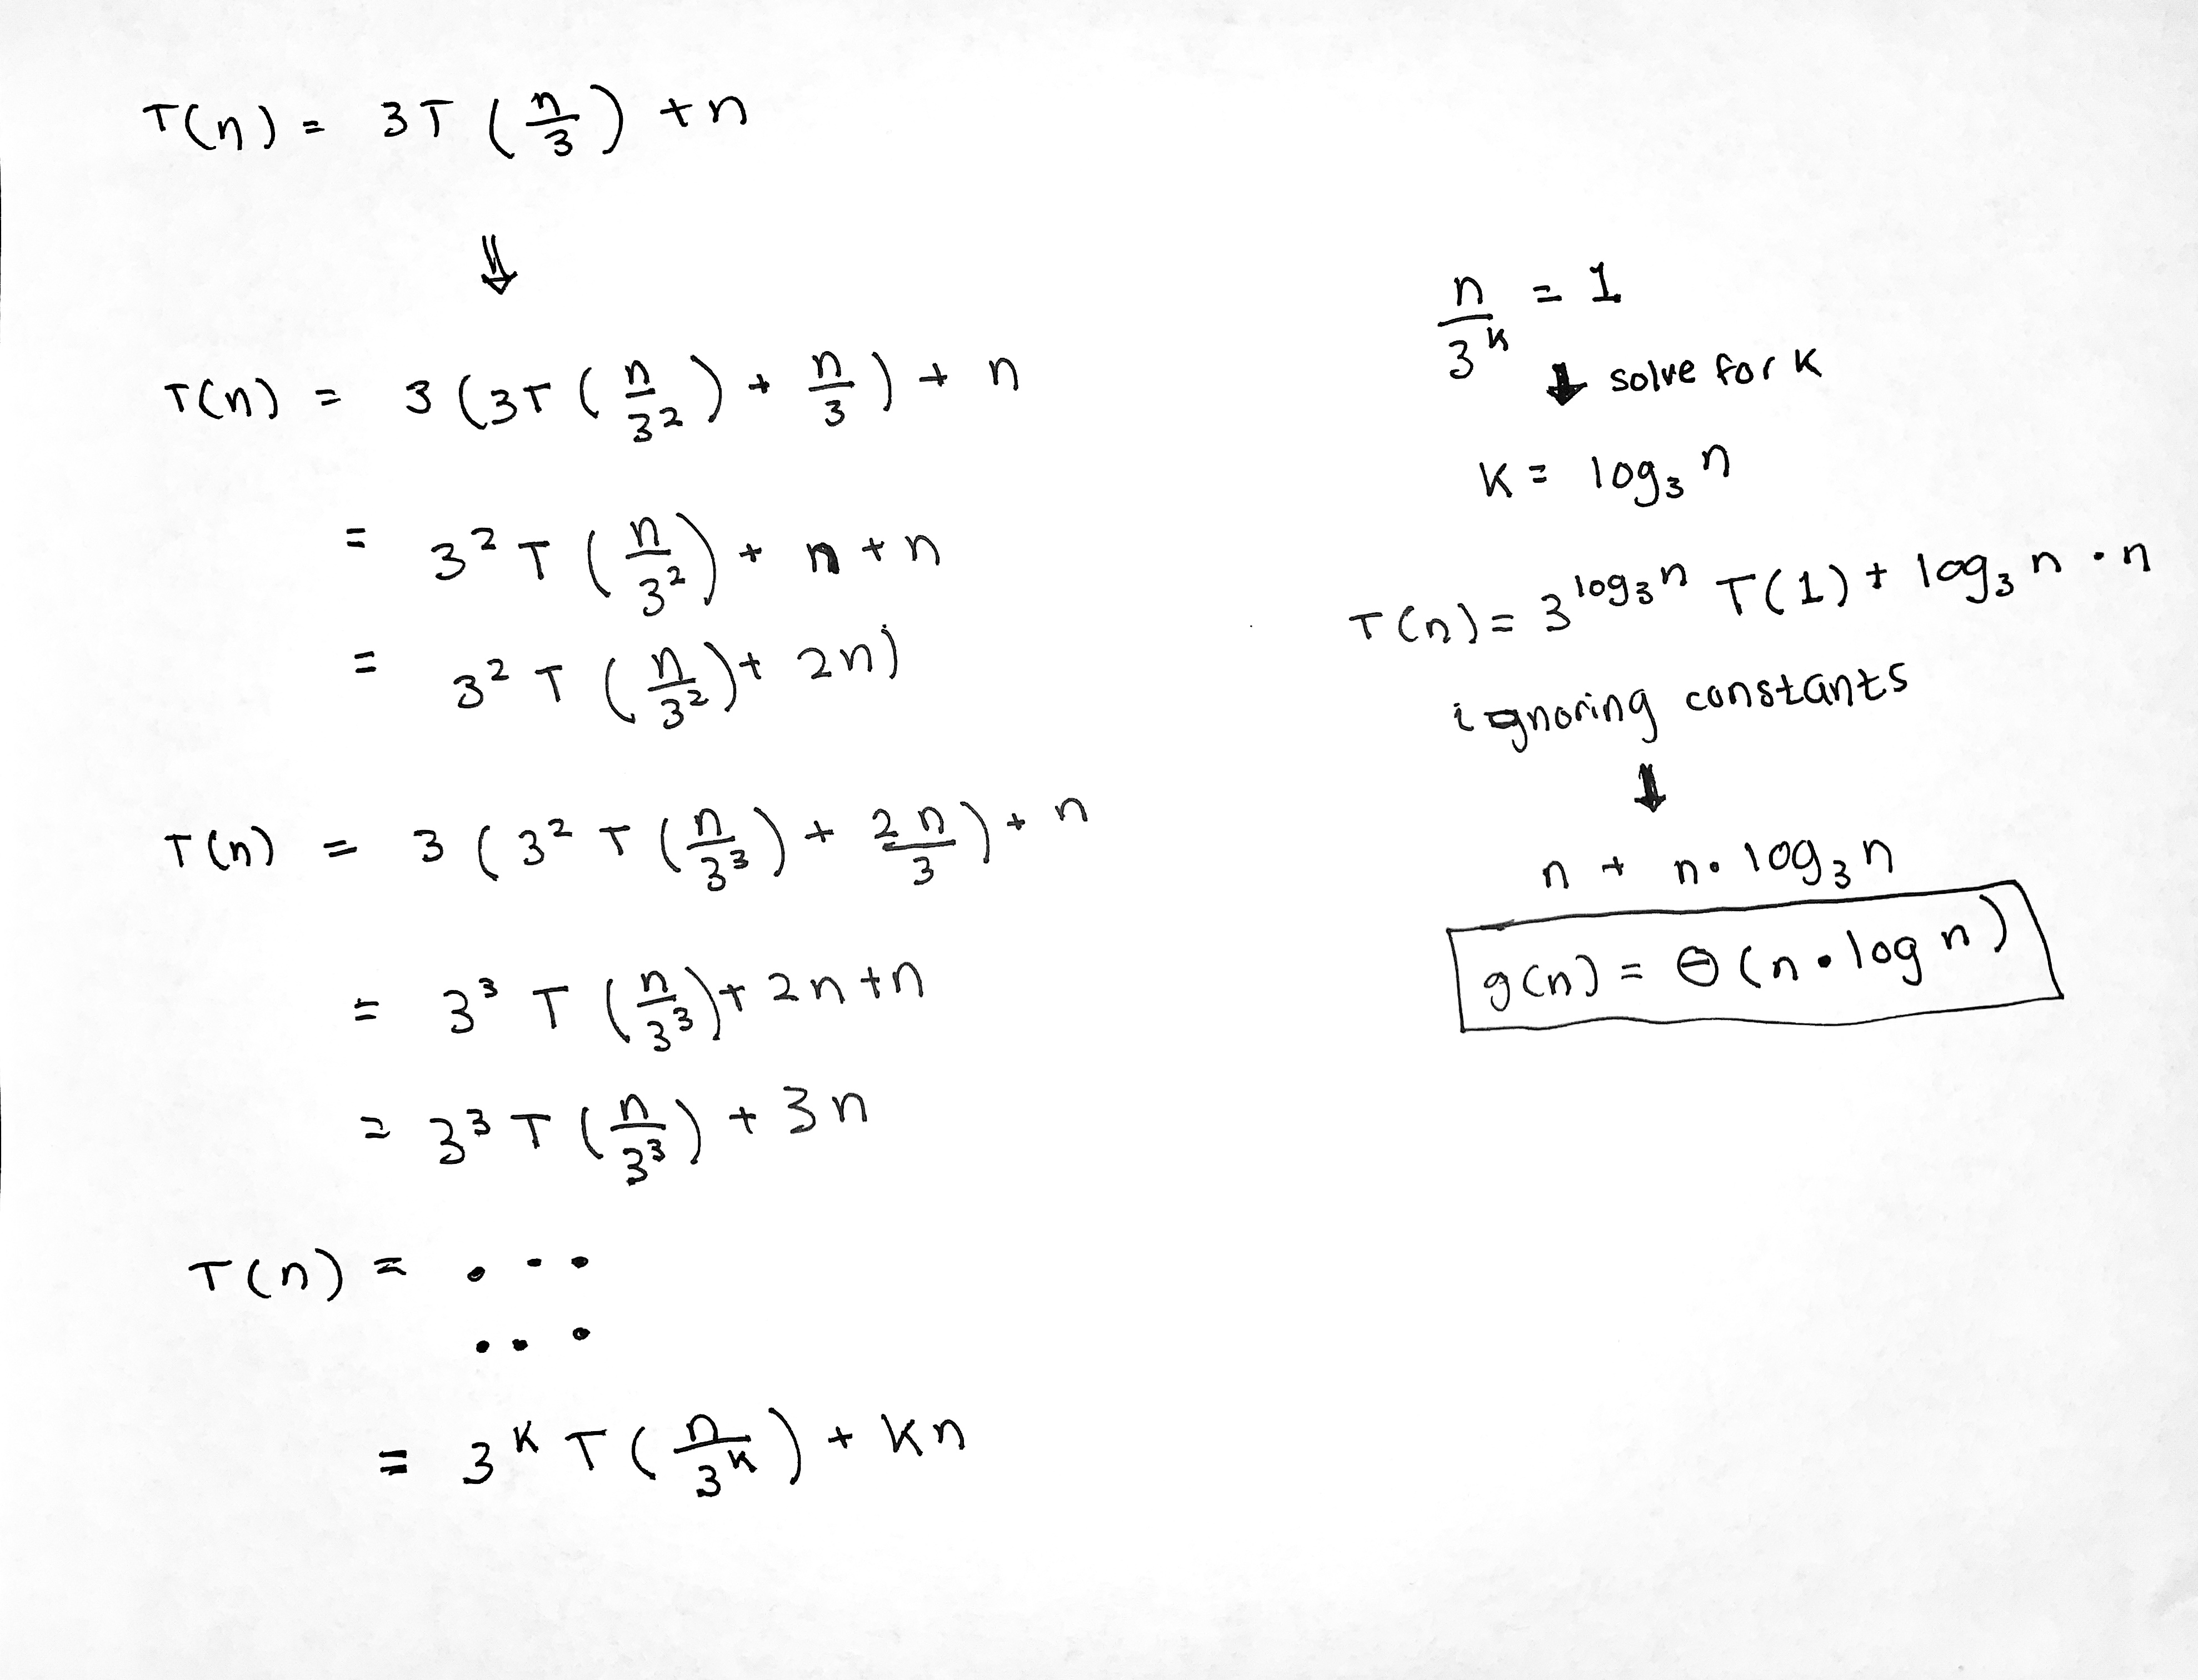 T(n) = 3T (n/3) + n
⇓
T(n) = 3 (3T (n/3²) + n/3) + n
= 3² T (n/3²) + n + n
= 3² T (n/3²) + 2n)
T(n) = 3 (3² T (n/3³) + 2n/3) + n
= 3³ T (n/3³) + 2n + n
= 3³ T (n/3³) + 3n
T(n) = . . .
. . .
= 3^K T (n/3^K) + Kn
n/3^K = 1
↓ solve for K
K = log₃ n
T(n) = 3^(log₃ n) T(1) + log₃ n · n
ignoring constants
↓
n + n · log₃ n
g(n) = Θ (n · log n)